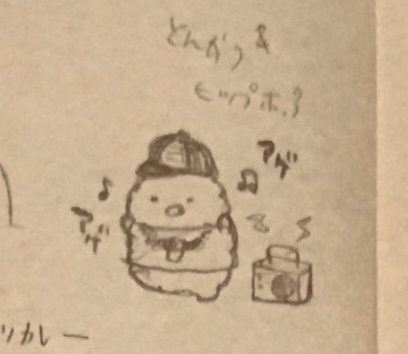 とんかつ &
ヒップホップ
アゲ
アゲ
ツカレー